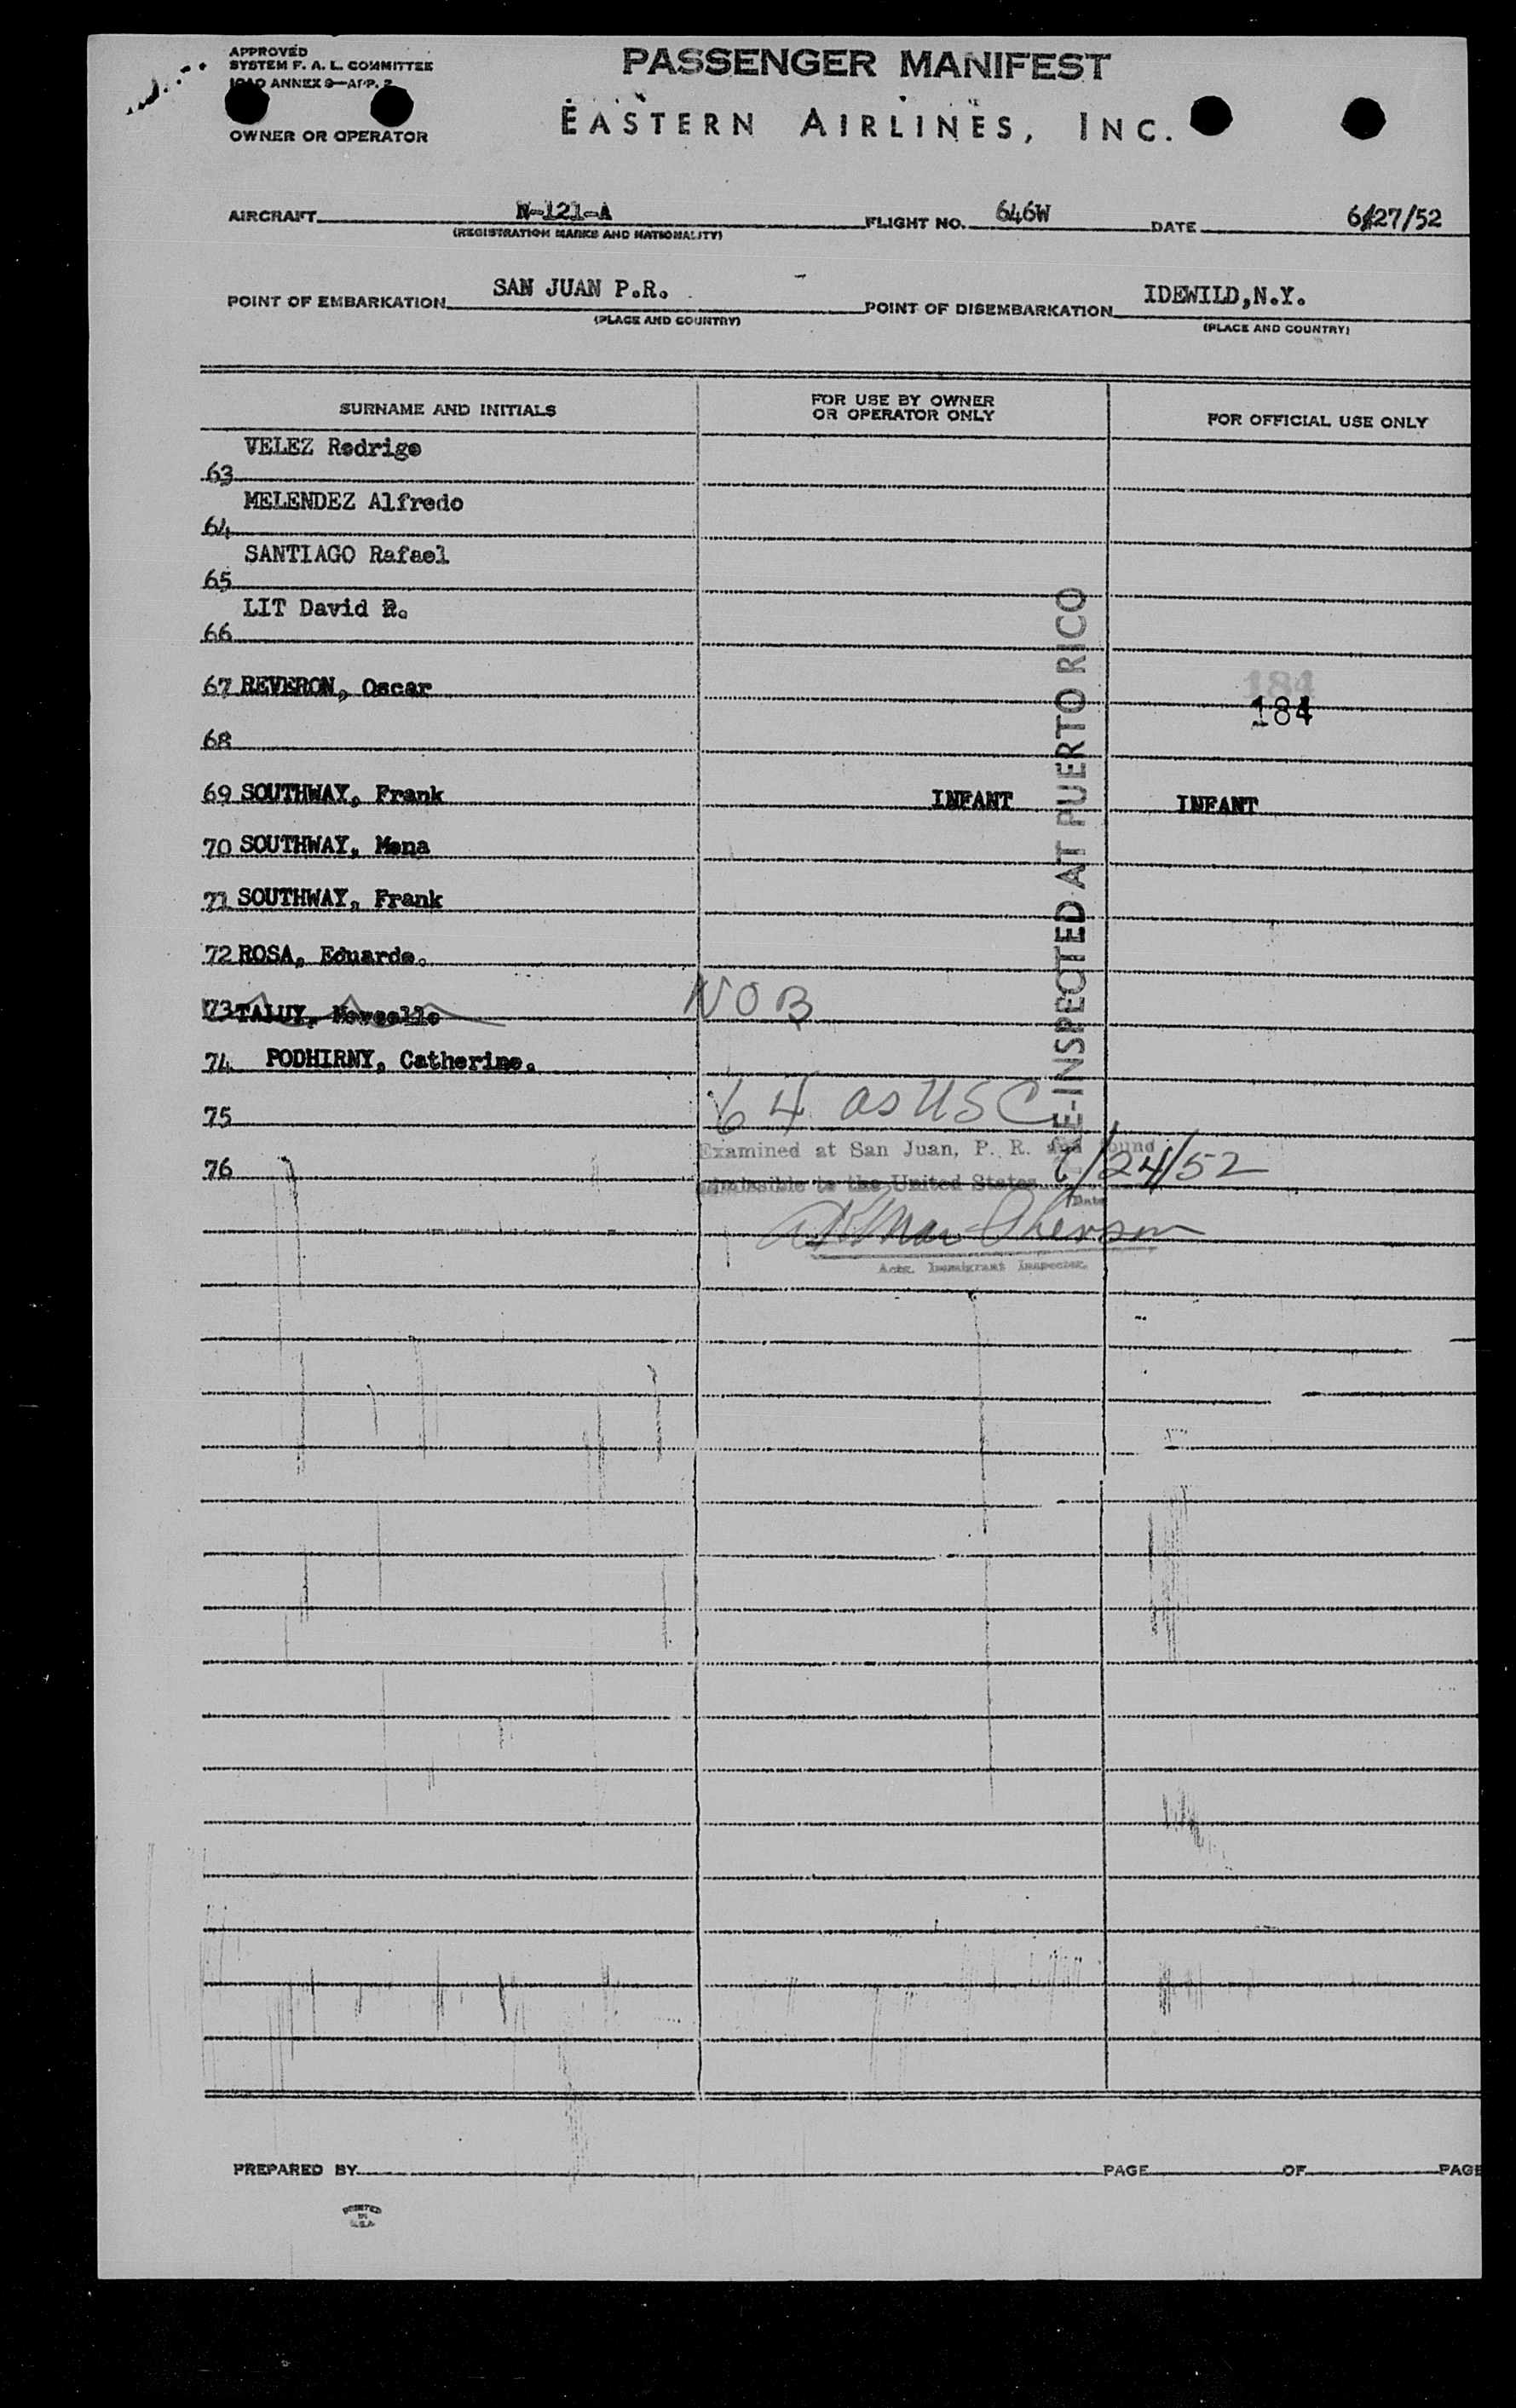 APPROVED
SYSTEM F. A. L. COMMITTEE
ICAO ANNEX 9—APP. 2
OWNER OR OPERATOR
PASSENGER MANIFEST
EASTERN AIRLINES, INC.
AIRCRAFT N-121-A FLIGHT NO. 646W DATE 6/27/52
(REGISTRATION MARKS AND NATIONALITY)
POINT OF EMBARKATION SAN JUAN P.R. POINT OF DISEMBARKATION IDEWILD,N.Y.
(PLACE AND COUNTRY) (PLACE AND COUNTRY)
SURNAME AND INITIALS FOR USE BY OWNER OR OPERATOR ONLY FOR OFFICIAL USE ONLY
63 VELEZ Rodrigo
64 MELENDEZ Alfredo
65 SANTIAGO Rafael
66 LIT David R.
67 REVERON, Oscar
184
184
68
69 SOUTHWAY, Frank INFANT INFANT
70 SOUTHWAY, Mona
71 SOUTHWAY, Frank
72 ROSA, Eduardo.
73 TALUY, NOB
74 PODHIRNY, Catherine.
75 64 as USC
76
Examined at San Juan, P. R. and found
admissible to the United States 6/24/52
Date
Actg. Immigrant Inspector.
RE-INSPECTED AT PUERTO RICO
PREPARED BY PAGE OF PAGE
PRINTED
IN
U.S.A.